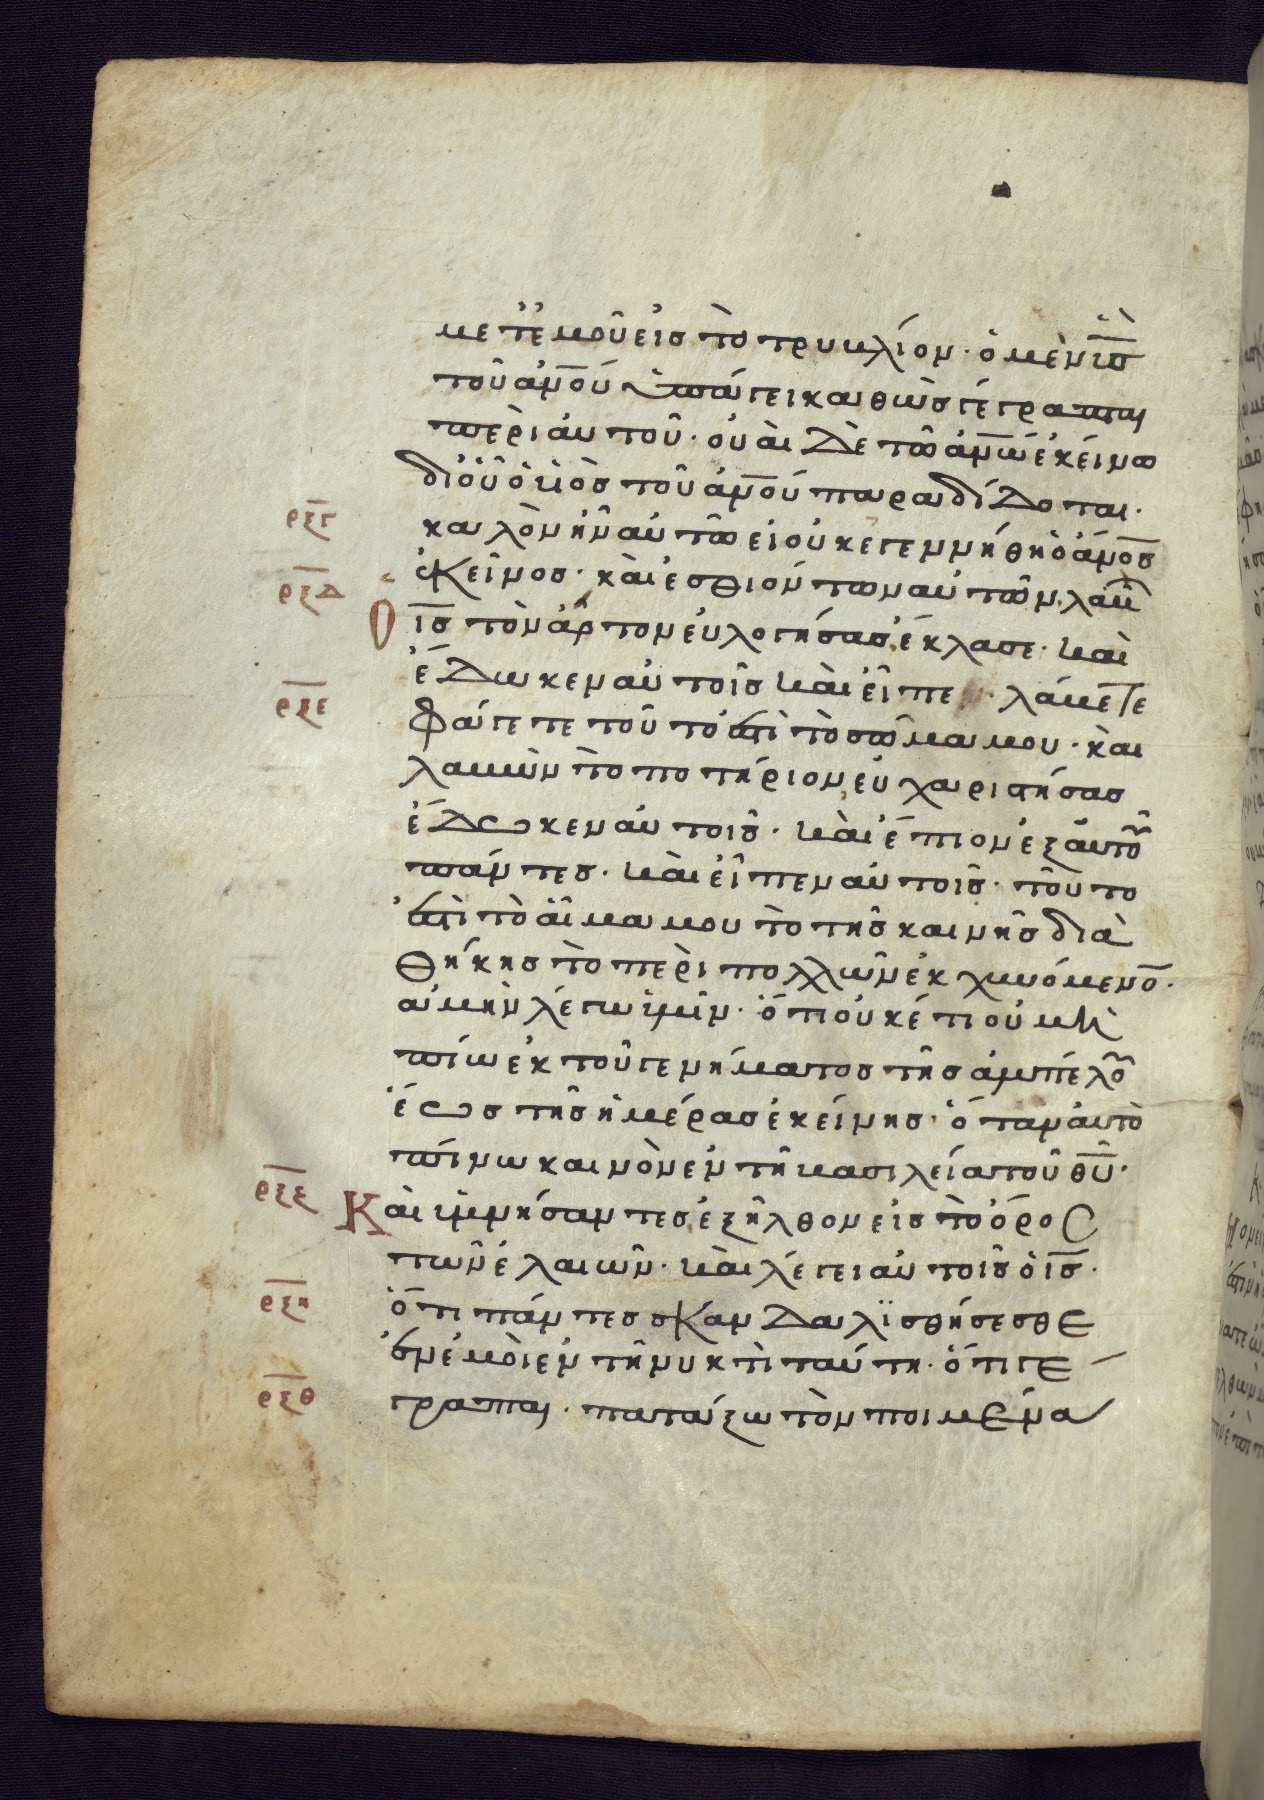 μετ ἐμοῦ εἰς τὸ τρυβλίον· ὁ μὲν ὑ̅ς̅
τοῦ ἀν̅ου ὑπάγει καθὼς γέγραπται
περὶ αὐτοῦ· οὐαὶ δὲ τῶ ἀν̅ω ἐκείνω
δι οὗ ὁ υἱὸς τοῦ ἀν̅ου παραδίδοται·
ρξγ καλὸν ἦν αὐτῶ εἰ οὐκ ἐγεννήθη ὁ ἄν̅ος
ρξδ ἐκεῖνος· καὶ ἐσθιόντων αὐτῶν λαβ
Ο ι̅ς̅ τὸν ἄρτον εὐλογήσας ἔκλασε· καὶ
ρξε ἔδωκεν αὐτοῖς καὶ εἶπε· λάβετε
φάγετε τοῦτό ἐστι τὸ σῶμα μου· καὶ
λαβὼν τὸ ποτήριον εὐχαριστήσας
ἔδωκεν αὐτοῖς· καὶ ἔπιον ἐξ αὐτοῦ
πάντες· καὶ εἶπεν αὐτοῖς· τοῦτο
ἐστὶ τὸ αἷμα μου τὸ τῆς καινῆς δια
θήκης τὸ περὶ πολλῶν ἐκχυνόμενο̅·
ἀμὴν λέγω ὑμῖν· ὅτι οὐκέτι οὐ μὴ
πίω ἐκ τοῦ γενήματος τῆς ἀμπέλου
ἕως τῆς ἡμέρας ἐκείνης· ὅταν αὐτὸ
πίνω καινὸν ἐν τῆ βασιλεία τοῦ θ̅υ̅·
ρξς Καὶ ὑμνήσαντες ἐξῆλθον εἰς τὸ ὄρος
τῶν ἐλαιῶν· καὶ λέγει αὐτοῖς ὁ ι̅ς̅·
ρξη ὅτι πάντες σκανδαλϊσθήσεσθε
ἐν ἐμοὶ ἐν τῆ νυκτὶ ταύτη· ὅτι γέ
ρξθ γραπται· πατάξω τὸν ποιμένα